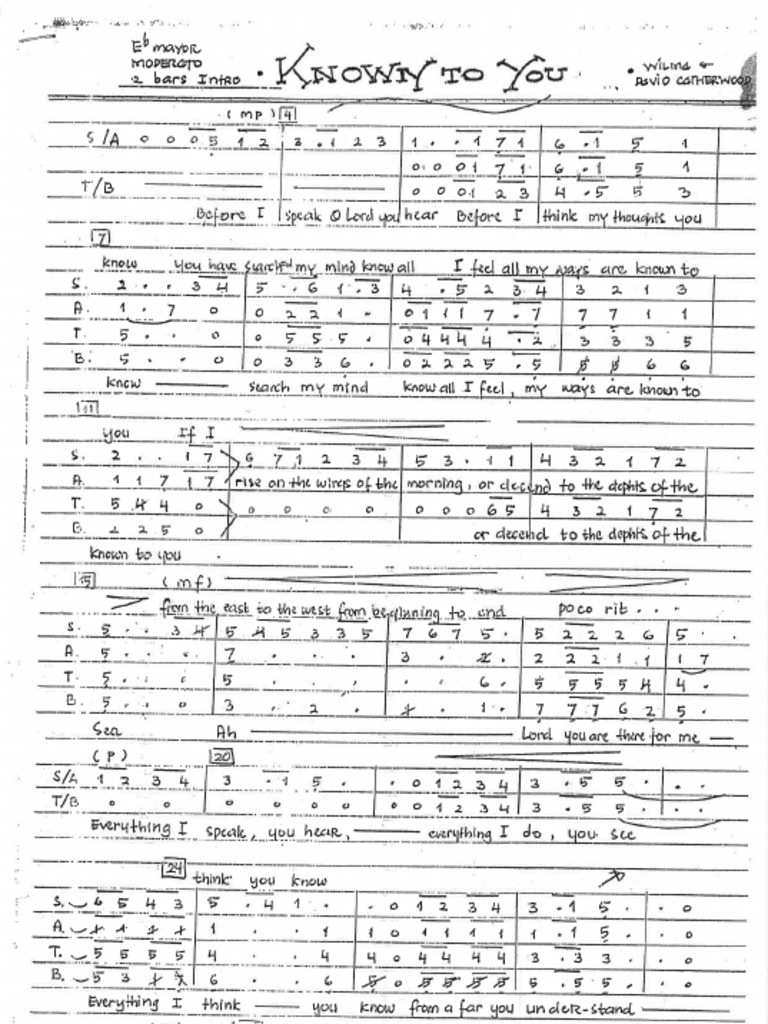 Eb mayor
MODERATO
2 bars Intro
• KNOWN TO YOU
• WILMA &
DAVID CATHERWOOD
(mp) 4
S/A 0 0 05 12 | 3 .1 2 3 | 1 . .1 71 | 6 .1 5 1
0 0 01 71 | 6 .1 5 1
T/B 0 0 01 23 | 4 .5 5 3
Before I | speak O Lord you | hear Before I | think my thoughts you
7
know you have searched my mind know all I feel all my ways are known to
S. 2 . . 34 | 5 . .6 1 .3 | 4 .5 2 34 | 3 2 1 3
A. 1 . 7 0 | 0 22 1 . | 01 11 7 .7 | 7 7 1 1
T. 5 . . 0 | 0 55 5 . | 04 44 4 .2 | 3 3 3 5
B. 5 . . 0 | 0 33 6 . | 02 22 5 .5 | 6 6
know search my mind know all I feel, my ways are known to
11
you If I
S. 2 . . 17 | 6 71 2 34 | 5 3 . 11 | 4 32 1 72
A. 1 1 7 17 | rise on the wings of the | morning, or decend to the dephts of the
T. 5 4 4 0 | 0 0 0 0 | 0 0 0 65 | 4 32 1 72
B. 2 2 5 0 or decend to the dephts of the
known to you .
15 (mf)
from the east to the west from beginning to end poco rit . . .
S. 5 . . 34 | 5 45 3 35 | 7 67 5 . | 5 22 2 6 | 5 . .
A. 5 . . . | 7 . . . | 3 . 2 . | 2 22 1 1 | 1 7
T. 5 . . . | 5 . . . | . . 6 . | 5 55 5 4 | 4 .
B. 5 . . 0 | 3 . 2 . | . 1 . | 7 77 6 2 | 5 .
Sea Ah Lord you are there for me
(P) 20
S/A 1 2 3 4 | 3 .1 5 . | . 0 12 34 | 3 .5 5 . | . .
T/B 0 0 0 0 | 0 0 0 0 | 0 0 12 34 | 3 .5 5 . | . .
Everything I speak, you hear, everything I do, you see
24
think you know
S. 6 5 4 3 | 5 .4 1 . | . 0 12 34 | 3 .1 5 . | . 0
A. | 1 . . 1 | 1 0 11 11 | 1 .1 5 . | . 0
T. 5 5 5 5 | 4 . . 4 | 4 0 44 44 | 3 .3 3 . | . 0
B. 5 3 | 6 . . 6 | 5 0 55 55 | 5 .5 5 . | . 0
Everything I think you know from a far you under-stand